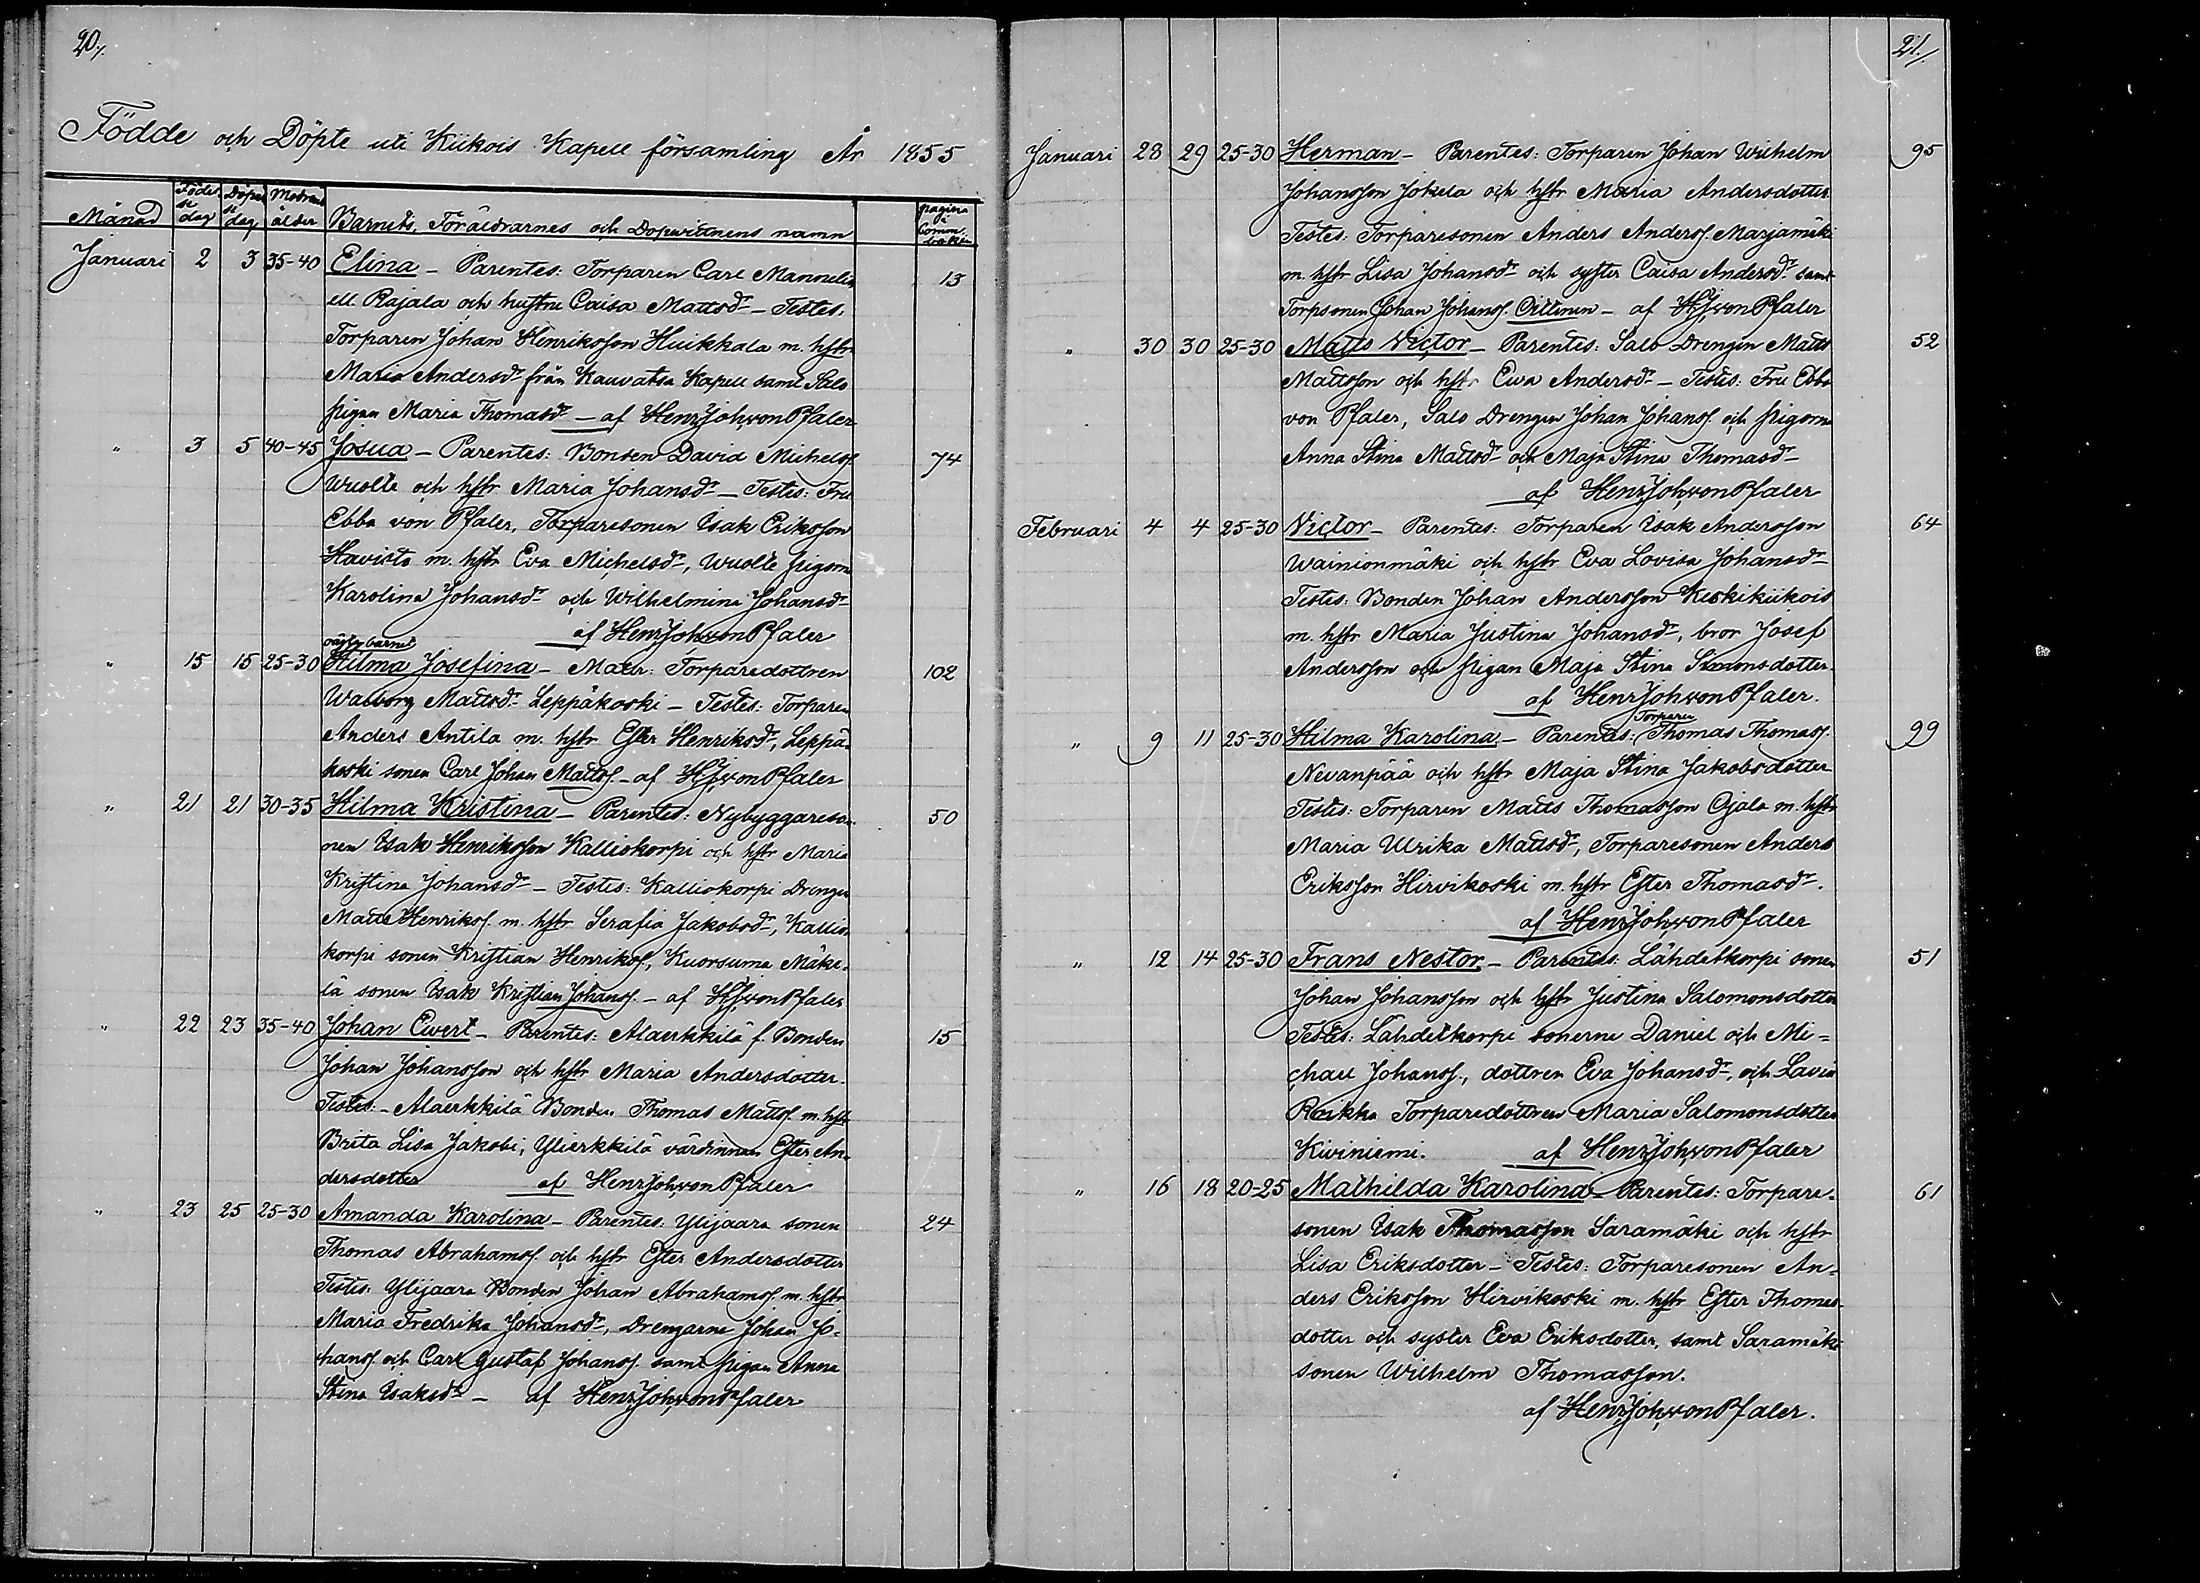 20./.
Födde och Döpte uti Kiikois Kapell församling År 1855
Månad Födelsedag Döpelsedag Modrens ålder Barnets, Föräldrarnes och Dopvittnens namn pagina i Commun.boken
Januari 2 3 35-40 Elina - Parentes: Torparen Carl Mannelin 13
ell. Rajala och hustru Caisa Mattsdr - Testes:
Torparen Johan Henriksson Huikkala m. hstr
Maria Andersdr från Kauvatsa Kapell samt Salo
pigan Maria Thomasdr - af Henr Joh von Pfaler
" 3 5 40-45 Josua - Parentes: Bonden David Michelss. 74
Wuolle och hstr Maria Johansdr - Testes: Fru
Ebba von Pfaler, Torparesonen Isak Eriksson
Havisto m. hstr Eva Michelsdr, Wuolle pigorna
Karolina Johansdr och Wilhelmina Johansdr
af Henr Joh von Pfaler
oägta barnet
" 15 15 25-30 Hilma Josefina - Mater: Torparedottren 102
Walborg Mattsdr Leppäkoski - Testes: Torparen
Anders Antila m. hstr Ester Henriksdr, Leppä-
koski sonen Carl Johan Mattss. - af HJ von Pfaler
" 21 21 30-35 Hilma Kristina - Parentes: Nybyggareso- 50
nen Isak Henriksson Kalliokorpi och hstr Maria
Kristina Johansdr - Testes: Kalliokorpi Drengen
Matts Henrikss. m. hstr Serafia Jakobsdr, Kallio-
korpi sonen Kristian Henrikss., Kuorsuma Mäke-
lä sonen Isak Kristian Johanss. - af HJ von Pfaler
" 22 23 35-40 Johan Ewert - Parentes: Alaerkkilä f. Bonden 15
Johan Johansson och hstr Maria Andersdotter.
Testes: Alaerkkilä Bonden Thomas Mattss. m. hstr
Brita Lisa Jakobi, Ylierkkilä värdinnan Ester An-
dersdotter af Henr Joh von Pfaler
" 23 25 25-30 Amanda Karolina - Parentes: Ylijaara sonen 24
Thomas Abrahamss. och hstr Ester Andersdotter
Testes: Ylijaara Bonden Johan Abrahamss. m. hstr
Maria Fredrika Johansdr, Drengarne Johan Jo-
hanss. och Carl Gustaf Johanss. samt pigan Anna
Stina Isaksdr - af Henr Joh von Pfaler
21./.
Januari 28 29 25-30 Herman - Parentes: Torparen Johan Wilhelm 95
Johansson Jokela och hstr Maria Andersdotter
Testes: Torparesonen Anders Anderss. Marjamäki
m. hstr Lisa Johansdr och syster Caisa Andersdr samt
Torpsonen Johan Johanss. - af HJ von Pfaler
" 30 30 25-30 Matts Victor - Parentes: Salo Drengen Matts 52
Mattsson och hstr Ewa Andersdr - Testes: Fru Ebba
von Pfaler, Salo Drengen Johan Johanss. och pigorna
Anna Stina Mattsdr och Maja Stina Thomasdr -
af Henr Joh von Pfaler
Februari 4 4 25-30 Victor - Parentes: Torparen Isak Andersson 64
Wainionmäki och hstr Eva Lovisa Johansdr -
Testes: Bonden Johan Andersson Keskikiikois
m. hstr Maria Justina Johansdr, bror Josef
Andersson och pigan Maja Stina Simonsdotter.
af Henr Joh von Pfaler.
" 9 11 25-30 Hilma Karolina - Parentes: Torparen Thomas Thomass. 99
Nevanpää och hstr Maja Stina Jakobsdotter
Testes: Torparen Matts Thomasson Ojala m. hstr
Maria Ulrika Mattsdr, Torparesonen Anders
Eriksson Hirvikoski m. hstr Ester Thomasdr.
af Henr Joh von Pfaler
" 12 14 25-30 Frans Nestor - Parentes: Lähdekorpi sonen 51
Johan Johansson och hstr Justina Salomonsdotter
Testes: Lähdekorpi sönerne Daniel och Mi-
chael Johanss., dottren Eva Johansdr, och Lavia
Raikka Torparedottren Maria Salomonsdotter
Kiviniemi. af Henr Joh von Pfaler
" 16 18 20-25 Mathilda Karolina - Parentes: Torpare- 61
sonen Isak Thomasson Saramäki och hstr
Lisa Eriksdotter - Testes: Torparesonen An-
ders Eriksson Hirvikoski m. hstr Ester Thomas-
dotter och syster Eva Eriksdotter, samt Saramäki
sonen Wilhelm Thomasson.
af Henr Joh von Pfaler.